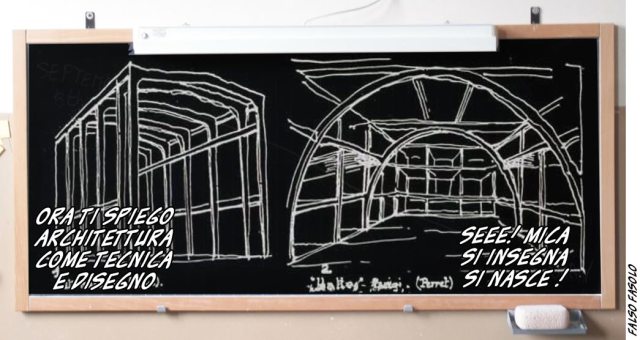 ORA TI SPIEGO
ARCHITETTURA
COME TECNICA
E DISEGNO.
SEEE! MICA
SI INSEGNA
SI NASCE!
Parigi (Perret)
FALSO FASOLO